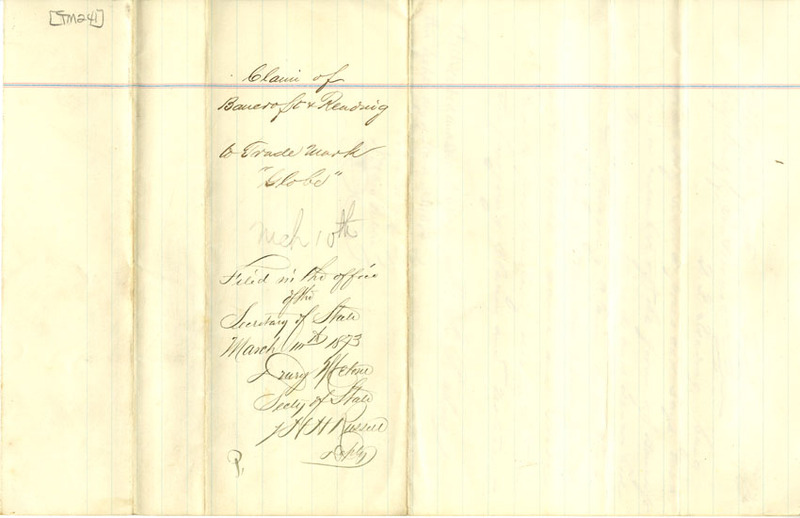 [TM241]
Claim of
Bancroft & Reading
to Trade Mark
"Globe"
Mch 10th
Filed in the office
of the
Secretary of State
March 10th 1873
Drury Melone
Secty of State
J H H Russell
Depty
P.